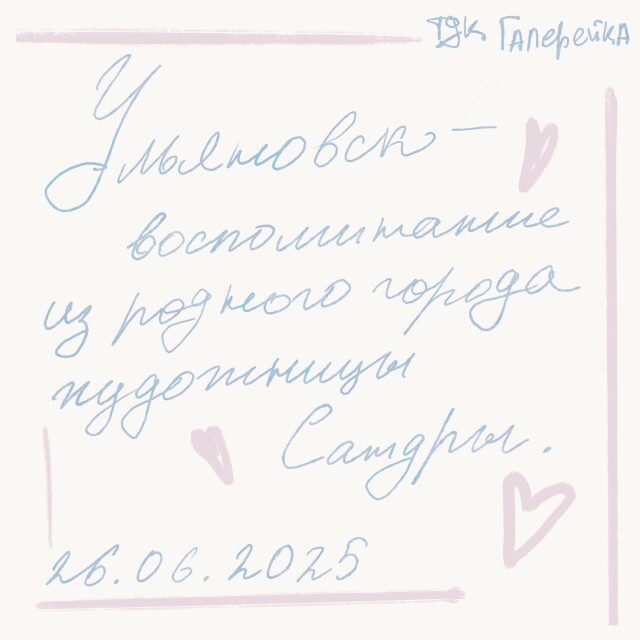 ТДК Галерейка
Ульяновск —
воспоминание
из родного города
художницы
Сандры.
26.06.2025